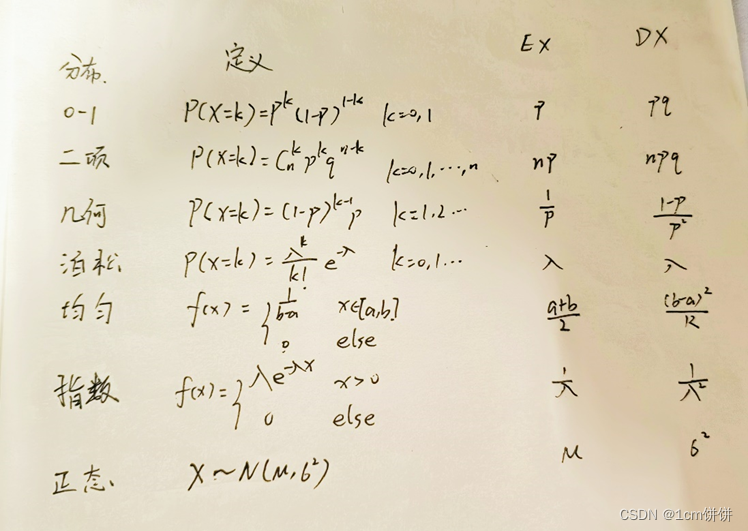 分布. 定义 EX DX
0-1 P(X=k)=p^k(1-p)^{1-k} k=0,1 p pq
二项 P(X=k)=C_n^k p^k q^{n-k} k=0,1,…,n np npq
几何 P(X=k)=(1-p)^{k-1}p k=1,2… 1/p (1-p)/p^2
泊松 P(X=k)=λ^k/k! e^{-λ} k=0,1… λ λ
均匀 f(x)={ 1/(b-a) x∈[a,b] (a+b)/2 (b-a)^2/12
0 else
指数 f(x)={ λe^{-λx} x>0 1/λ 1/λ^2
0 else
正态 X~N(μ,σ^2) μ σ^2
CSDN @1cm饼饼